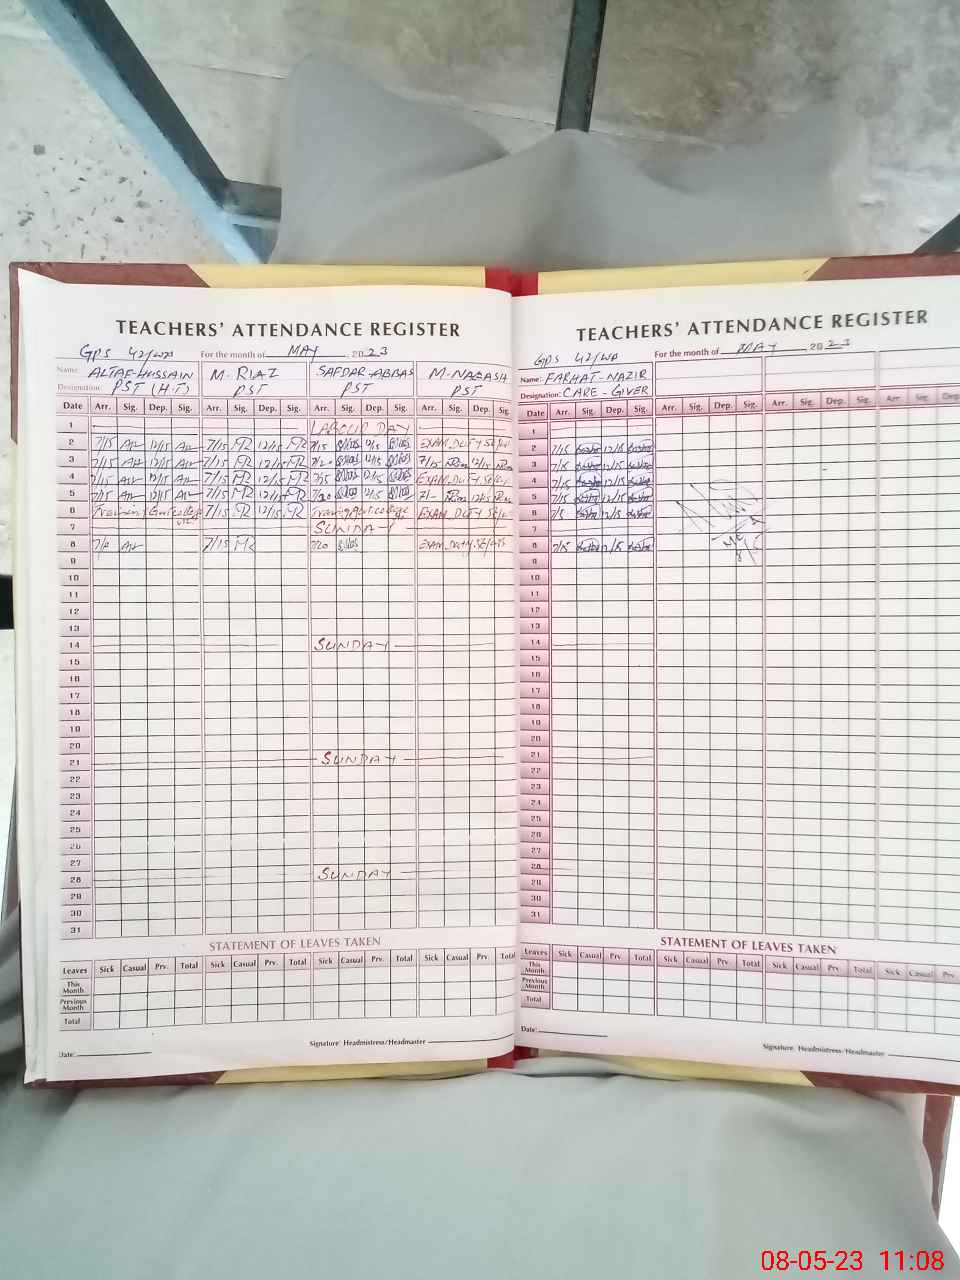 TEACHERS' ATTENDANCE REGISTER
GPS 42/WB For the month of MAY 2023
Name: ALTAF-HUSSAIN M. RIAZ SAFDAR-ABBAS M-NAQASH
Designation: PST (H.T) PST PST PST
Date Arr. Sig. Dep. Sig. Arr. Sig. Dep. Sig. Arr. Sig. Dep. Sig. Arr. Sig. Dep. Sig.
1 LABOUR DAY
2 7/15 12/15 7/15 MR 12/15 MR 7/15 12/15 EXAM. DUTY
3 7/15 12/15 7/15 MR 12/15 MR 7/20 12/15 7/15 12/15
4 7/15 12/15 7/15 MR 12/15 MR 7/25 12/15 EXAM. DUTY
5 7/15 12/15 7/15 MR 12/15 MR 7/20 12/15 7/- 12/15
6 Training 7/15 MR 12/15 MR Training EXAM. DUTY
7 SUNDAY
8 7/15 MR 7/20 EXAM. DUTY
9
10
11
12
13
14 SUNDAY
15
16
17
18
19
20
21 SUNDAY
22
23
24
25
26
27
28 SUNDAY
29
30
31
STATEMENT OF LEAVES TAKEN
Leaves Sick Casual Prv. Total Sick Casual Prv. Total Sick Casual Prv. Total Sick Casual Prv. Total
This Month
Previous Month
Total
Date: Signature: Headmistress/Headmaster
TEACHERS' ATTENDANCE REGISTER
GPS 42/WB For the month of MAY 2023
Name: FARHAT-NAZIR
Designation: CARE-GIVER
Date Arr. Sig. Dep. Sig. Arr. Sig. Dep. Sig. Arr. Sig. Dep. Sig. Arr Sig. Dep.
1
2 7/15 12/15
3 7/15 12/15
4 7/15 12/15
5 7/15 12/15
6 7/15 12/15
7
8 7/15 12/15
9
10
11
12
13
14
15
16
17
18
19
20
21
22
23
24
25
26
27
28
29
30
31
STATEMENT OF LEAVES TAKEN
Leaves Sick Casual Prv. Total Sick Casual Prv. Total Sick Casual Prv. Total Sick Casual Prv.
This Month
Previous Month
Total
Date: Signature: Headmistress/Headmaster
08-05-23 11:08